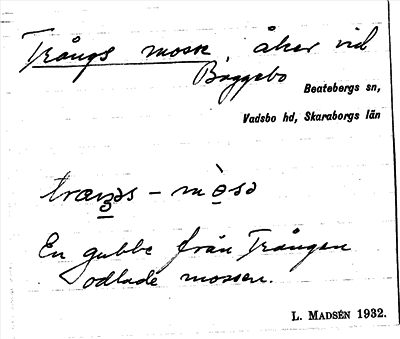 Trångs mosse, åker vid
Båggebo
Beatebergs sn,
Vadsbo hd, Skaraborgs län
En gubbe från Trången
odlade mossen.
L. MADSÉN 1932.